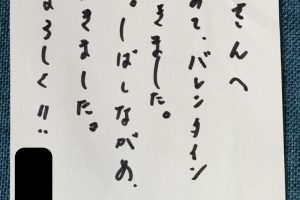 さんへ
めて、バレンタイン
きました。
ーばしながめ、
きました。
ろしく!!